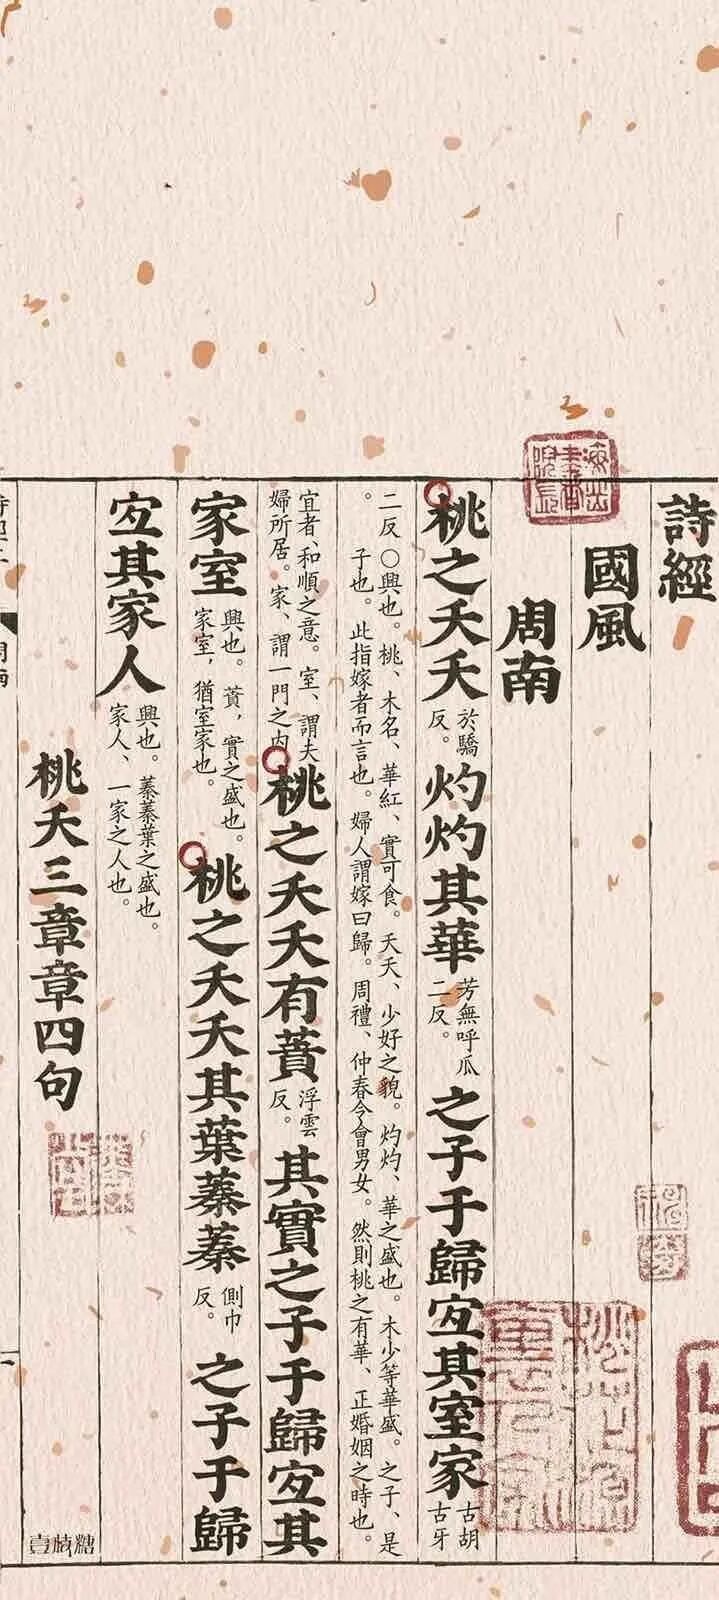 詩經
國風
周南
桃之夭夭於驕反。灼灼其華芳無呼瓜二反。之子于歸宐其室家古胡古牙
二反〇興也。桃、木名、華紅、實可食。夭夭、少好之貌。灼灼、華之盛也。木少等華盛。之子、是
。子也。此指嫁者而言也。婦人謂嫁曰歸。周禮、仲春令會男女。然則桃之有華、正婚姻之時也。
宜者、和順之意。室、謂夫婦所居。家、謂一門之內桃之夭夭有蕡浮雲反。其實之子于歸宐其
家室興也。蕡,實之盛也。家室,猶室家也。桃之夭夭其葉蓁蓁側巾反。之子于歸
宐其家人興也。蓁蓁葉之盛也。家人、一家之人也。
桃夭三章章四句
桃花源
裏人家